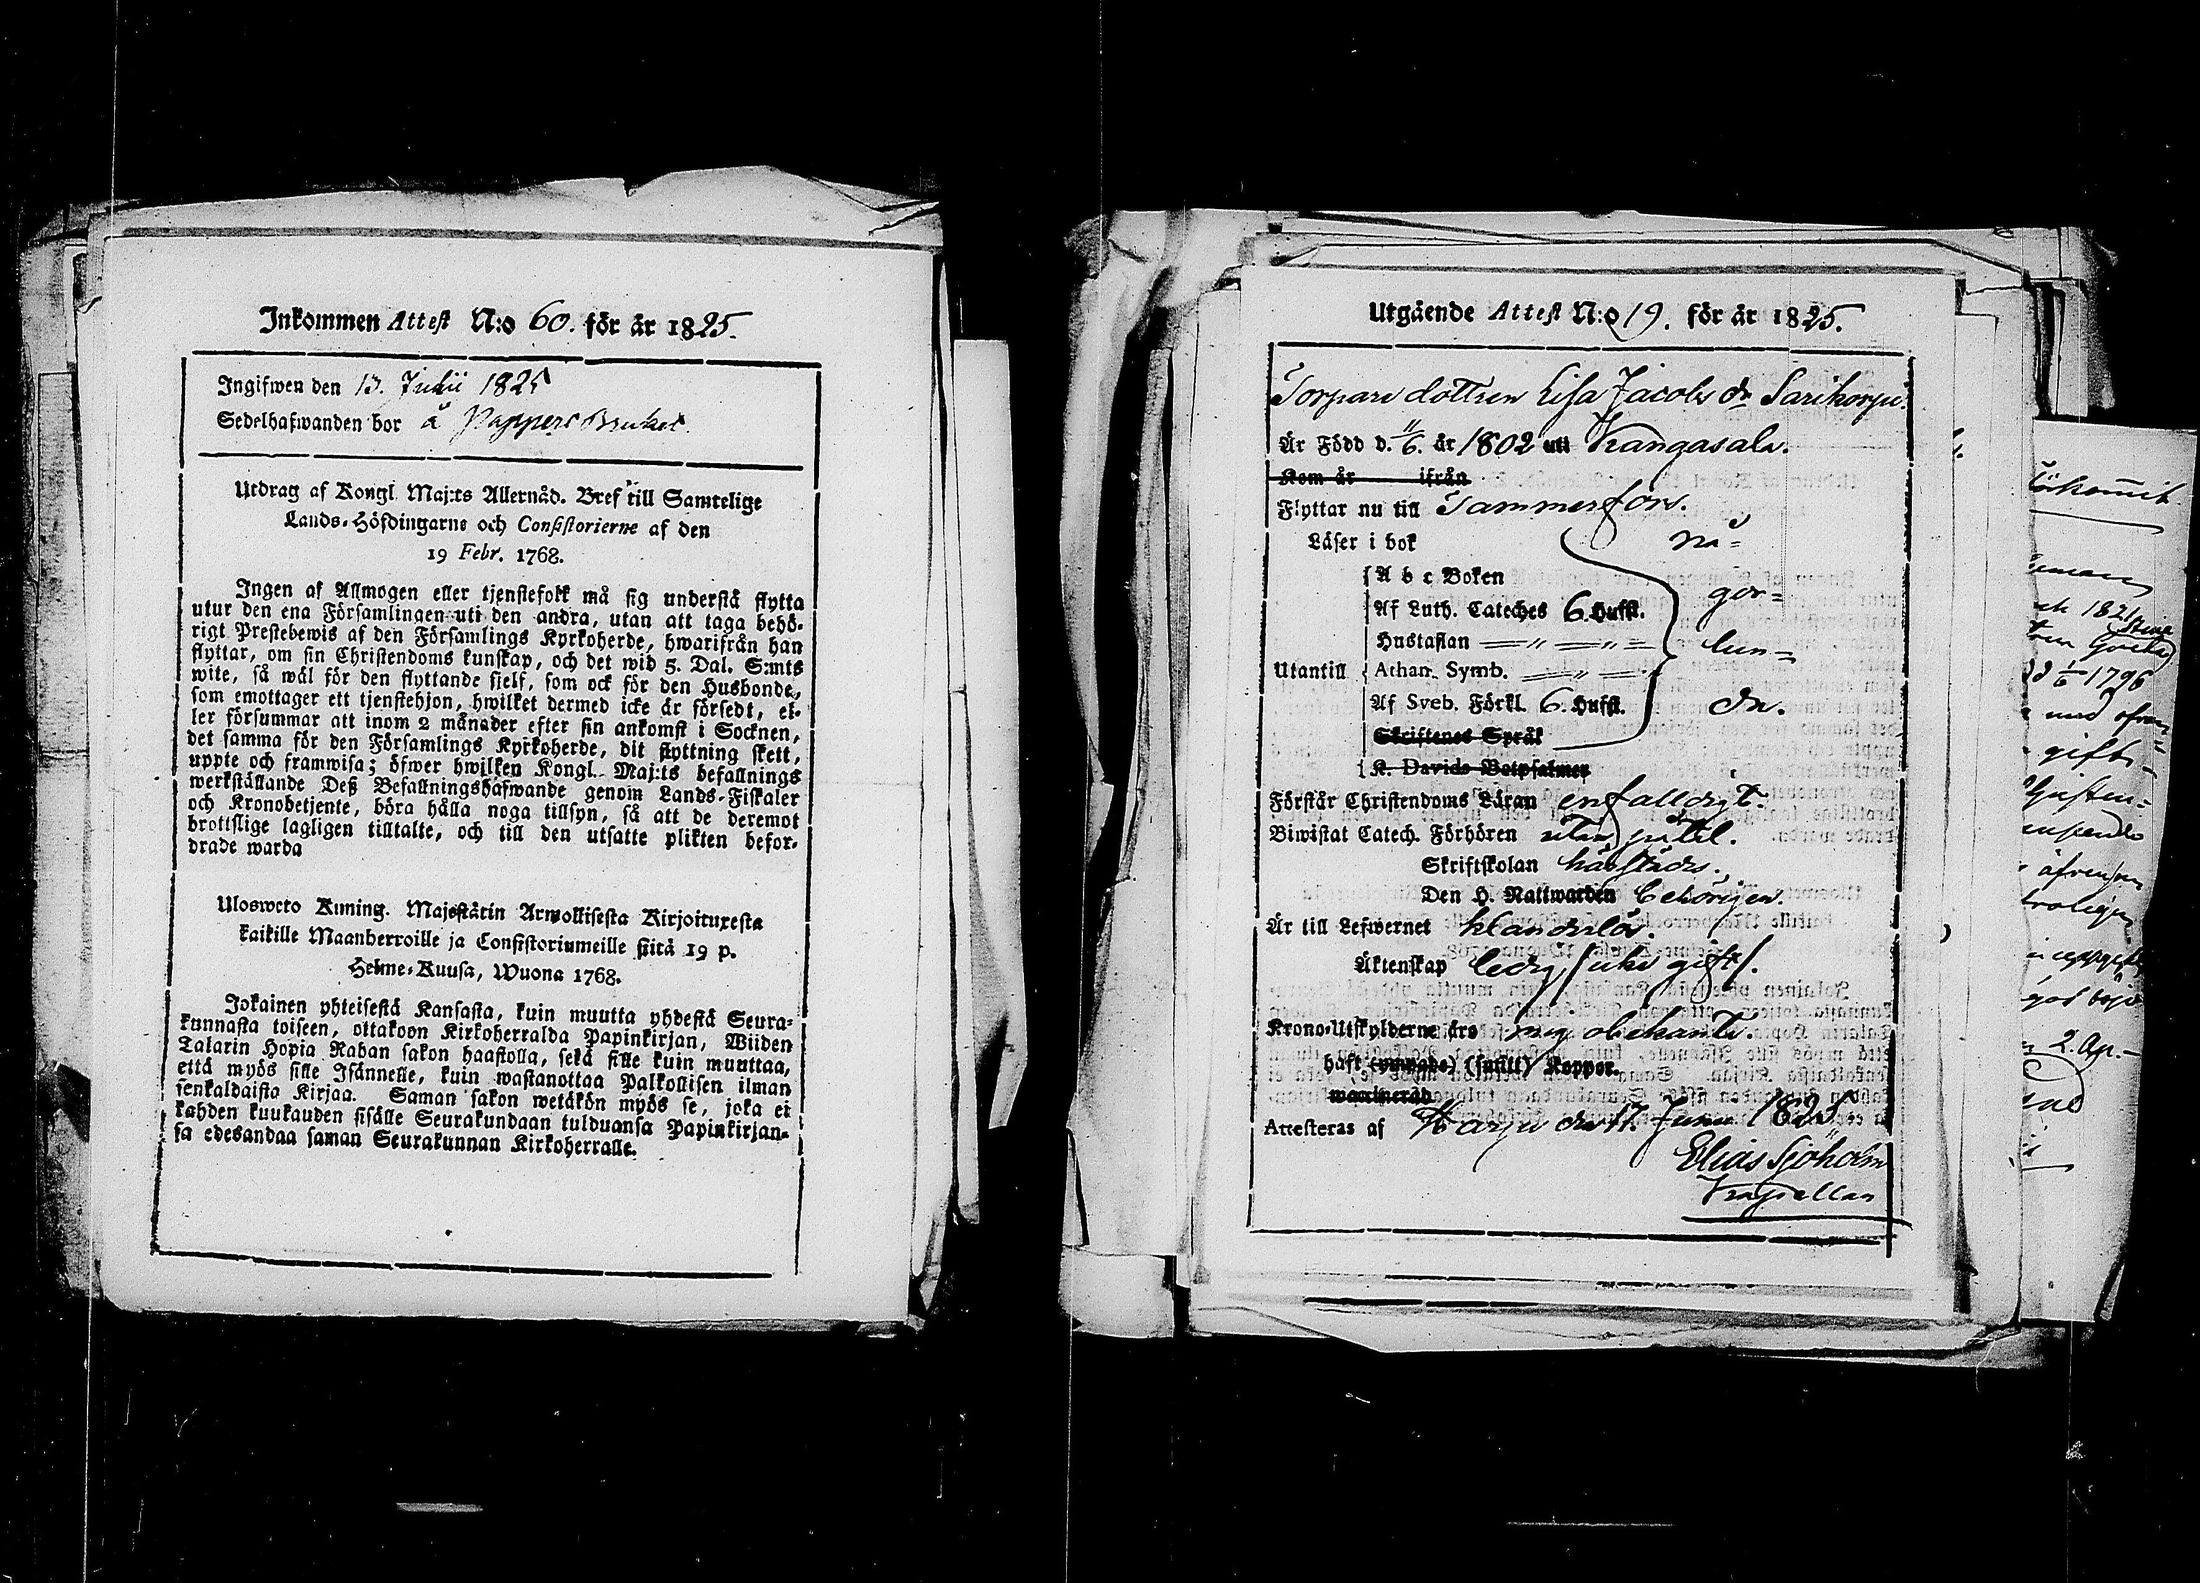 Inkommen Attest N:o 60. för år 1825.
Ingifwen den 13. Julii 1825
Sedelhafwanden bor å Pappers Bruket
Utdrag af Kongl. Maj:ts Allernåd. Bref till Samtelige
Lands-Höfdingarne och Consistorierne af den
19 Febr. 1768.
Ingen af Allmogen eller tjenstefolk må sig understå flytta
utur den ena Församlingen uti den andra, utan att taga behö-
rigt Prestebewis af den Församlings Kyrkoherde, hwarifrån han
flyttar, om sin Christendoms kunskap, och det wid 5. Dal. S:mts
wite, så wäl för den flyttande sjelf, som ock för den Husbonde,
som emottager ett tjenstehjon, hwilket dermed icke är försedt, el-
ler försummar att inom 2 månader efter sin ankomst i Socknen,
det samma för den Församlings Kyrkoherde, dit flyttning skett,
uppte och framwisa; öfwer hwilken Kongl. Maj:ts befallnings
werkställande Deß Befallningshafwande genom Lands-Fiskaler
och Kronobetjente, böra hålla noga tillsyn, så att de deremot
brottslige lagligen tilltalte, och till den utsatte plikten befor-
drade warda
Ulosweto Kuning. Majestätin Armollisesta Kirjoituxesta
kaikille Maanherroille ja Consistoriumeille siitä 19 p.
Helme-Kuusa, Wuona 1768.
Jokainen yhteisestä Kansasta, kuin muutta yhdestä Seura-
kunnasta toiseen, ottakoon Kirkoherralda Papinkirjan, Wiiden
Talarin Hopia Rahan sakon haastolla, sekä sille kuin muuttaa,
että myös sille Isännelle, kuin wastanottaa Palkollisen ilman
senkaldaista Kirjaa. Saman sakon wetäkön myös se, joka ei
kahden kuukauden sisälle Seurakundaan tulduansa Papinkirjan-
sa edesandaa saman Seurakunnan Kirkoherralle.
Utgående Attest N:o 19. för år 1825.
Torpare dottren Lisa Jacobs dr Sarikorpu.
Är Född d. 11/6. år 1802 uti Kangasala.
Kom år ifrån
Flyttar nu till Tammerfors.
Läser i bok nå=
A b c Boken
gör=
Af Luth. Cateches 6. Hufst.
Hustaflan — " — " = lun=
Utantill Athan. Symb. — " — "
Af Sveb. Förkl. 6. Hufst. da.
Skriftenes Språk
K. Davids Botpsalmer
Förstår Christendoms Läran enfalldigt.
Biwistat Catech. Förhören
Skriftskolan härstädes.
Den H. Nattwarden behörigen.
Är till Lefwernet klanderlös.
Äktenskap ledig /icke gift/.
Krono-Utskylderne äro mig obekante.
haft (ympade) (sjelfl) Koppor.
waccinerad
Attesteras af Harju den 17. Junii 1825
Elias Sjöholm
Kapellan
1821
1/6 1796
gift
2. Ap.